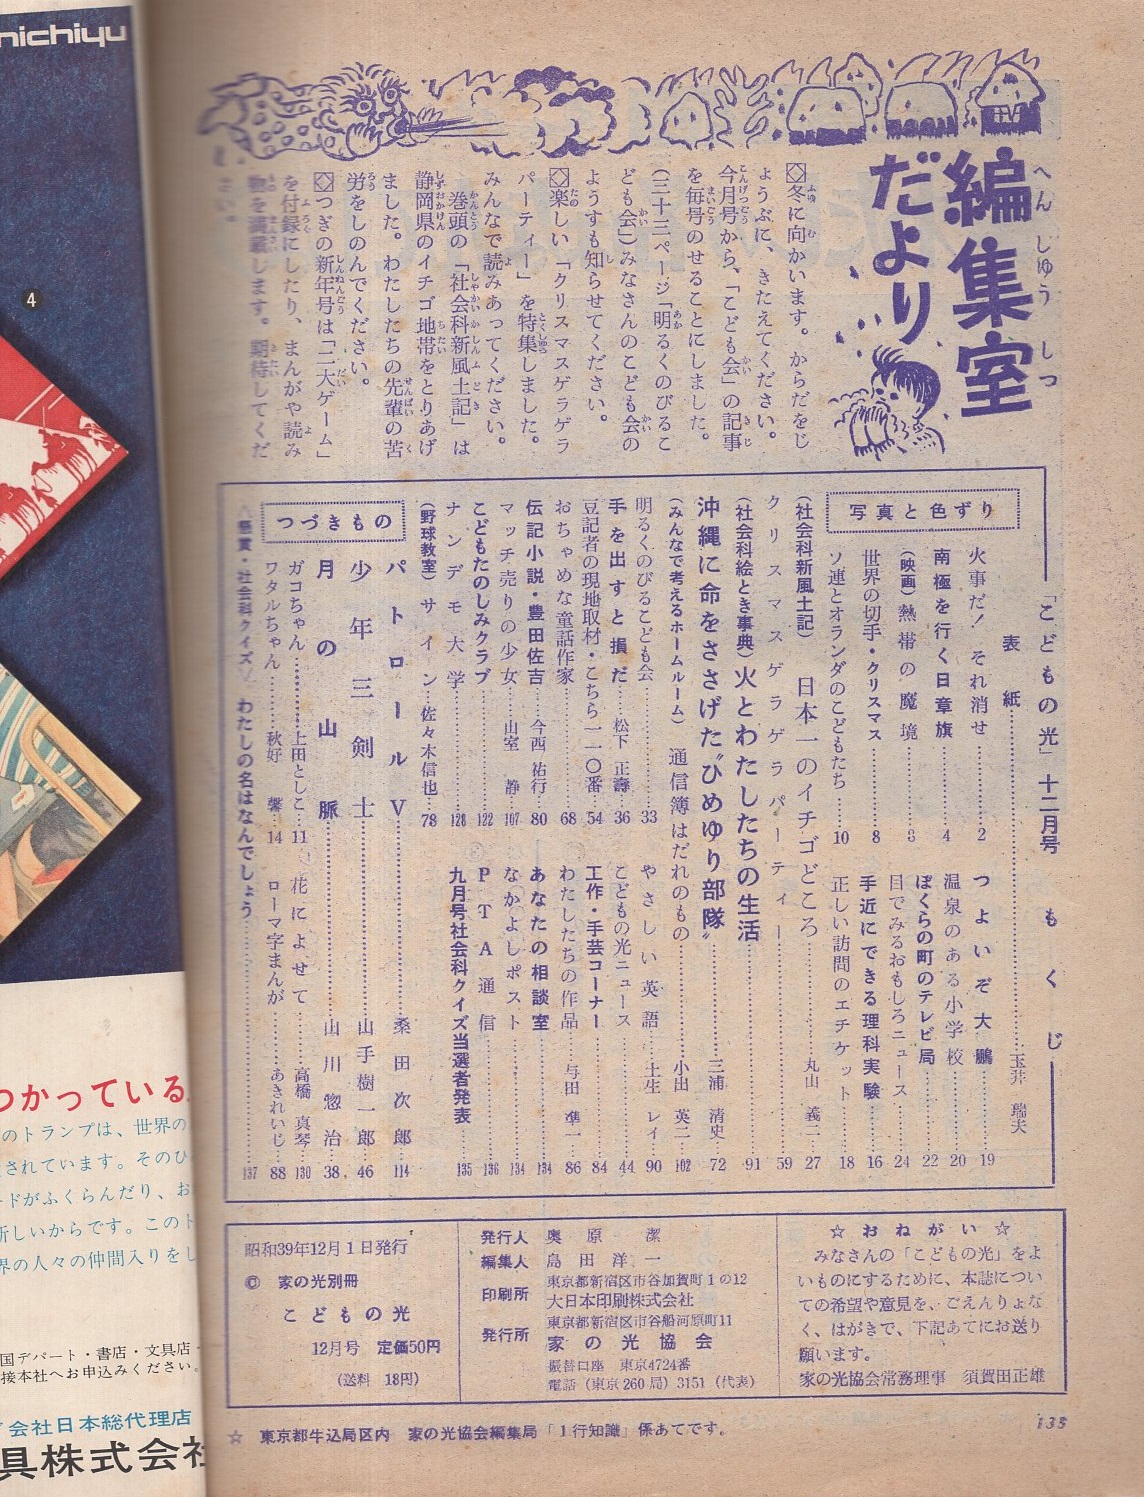 編集室
だより
へんしゅうしつ
◇冬に向かいます。からだをじ
ょうぶに、きたえてください。
今月号から、「こども会」の記事
を毎号のせることにしました。
(三十三ページ「明るくのびるこ
ども会」)みなさんのこども会の
ようすも知らせてください。
◇楽しい「クリスマスゲラゲラ
パーティー」を特集しました。
みんなで読みあってください。
巻頭の「社会科新風土記」は
静岡県のイチゴ地帯をとりあげ
ました。わたしたちの先輩の苦
労をしのんでください。
◇つぎの新年号は「二大ゲーム」
を付録にしたり、まんがや読み
物を満載します。期待してくだ
さい。
「こどもの光」十二月号 もくじ
表紙……玉井 瑞夫
写真と色ずり
火事だ!それ消せ……2
南極を行く日章旗……4
(映画)熱帯の魔境……3
世界の切手・クリスマス……8
ソ連とオランダのこどもたち……10
つよいぞ大鵬……19
温泉のある小学校……20
ぼくらの町のテレビ局……22
目でみるおもしろニュース……24
手近にできる理科実験……16
正しい訪問のエチケット……18
(社会科新風土記)日本一のイチゴどころ……丸山 義二…27
クリスマスゲラゲラパーティー……59
(社会科絵とき事典)火とわたしたちの生活……91
沖縄に命をささげた〝ひめゆり部隊〟……三浦 清史…72
(みんなで考えるホームルーム)通信簿はだれのもの……小出 英二…102
明るくのびるこども会……33
手を出すと損だ……松下 正壽…36
豆記者の現地取材・こちら一一〇番…54
おちゃめな童話作家……68
伝記小説・豊田佐吉……今西 祐行…80
マッチ売りの少女……山室 静…107
こどもたのしみクラブ……122
ナンデモ大学……128
(野球教室)サイン…佐々木信也…78
やさしい英語……土生 レイ…90
こどもの光ニュース……44
工作・手芸コーナー……84
わたしたちの作品……与田 凖一…86
あなたの相談室……134
なかよしポスト……134
PTA通信……136
九月号社会科クイズ当選者発表……135
つづきもの
パトロールV……桑田次郎…114
少年三剣士……山手樹一郎…46
月の山脈……山川惣治…38
ガコちゃん……上田としこ…11
ワタルちゃん……秋好 馨…14
花によせて……高橋 真琴…130
ローマ字まんが……あきれいじ…88
〈懸賞・社会科クイズ〉わたしの名はなんでしょう……137
☆おねがい☆
みなさんの「こどもの光」をよ
いものにするために、本誌につい
ての希望や意見を、ごえんりょな
く、はがきで、下記あてにお送り
願います。
家の光協会常務理事 須賀田正雄
発行人 奥原 潔
編集人 島田洋一
印刷所 東京都新宿区市谷加賀町1の12
大日本印刷株式会社
発行所 東京都新宿区市谷船河原町11
家の光協会
振替口座 東京4724番
電話(東京260局)3151(代表)
昭和39年12月1日発行
© 家の光別冊
こどもの光
12月号 定価50円
(送料 18円)
☆ 東京都牛込局区内 家の光協会編集局「1行知識」係あてです。
135
nichiyu
4
つかっている
のトランプは、世界の
されています。そのひ
ードがふくらんだり、お
新しいからです。このト
界の人々の仲間入りをし
国デパート・書店・文具店
接本社へお申込みください。
会社日本総代理店
具株式会社